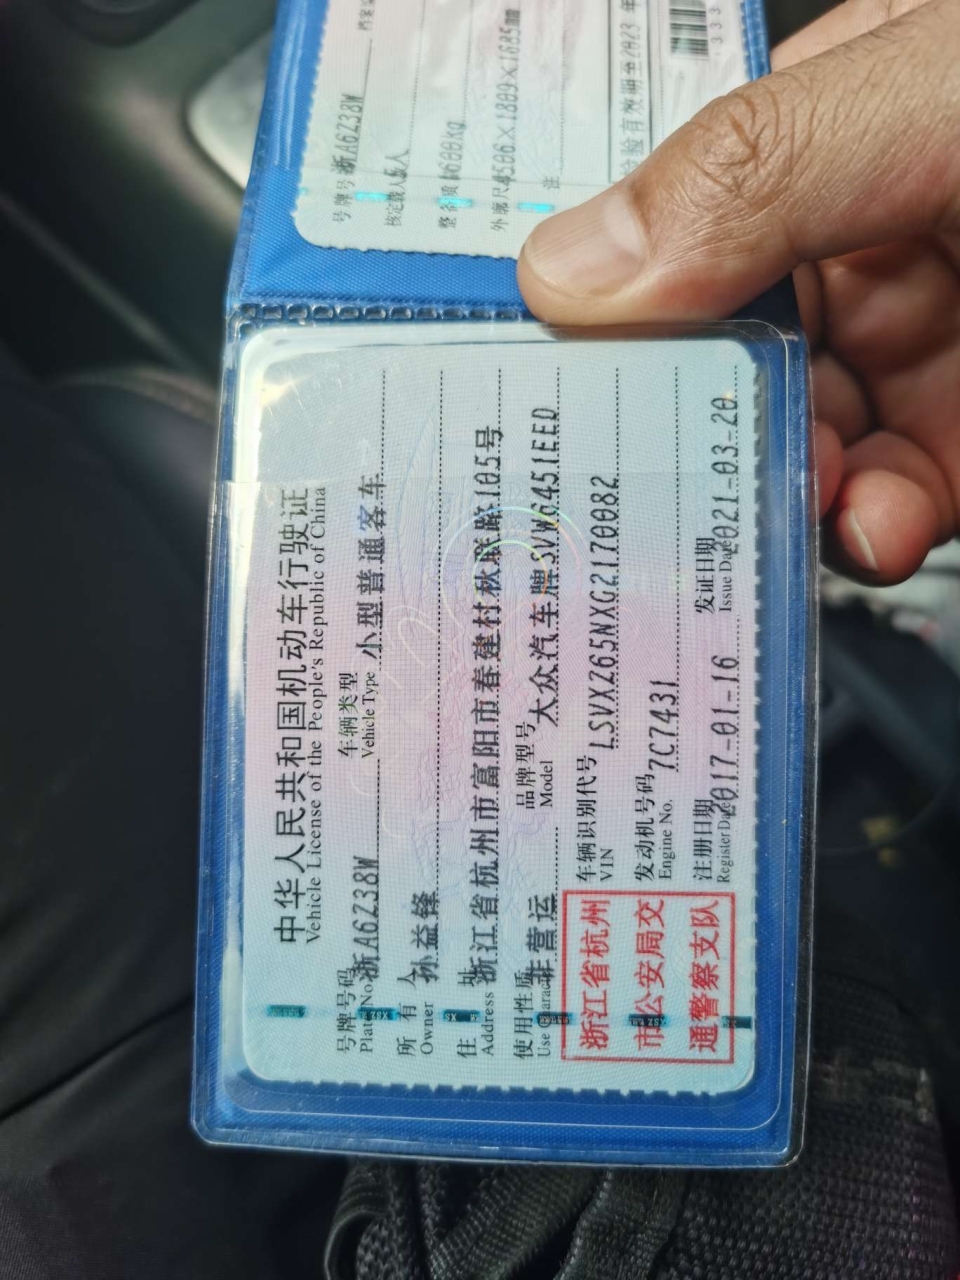 中华人民共和国机动车行驶证
Vehicle License of the People's Republic of China
号牌号码 浙A6Z38W 车辆类型 小型普通客车
Plate No. Vehicle Type
所有人 孙益锋
Owner
住址 浙江省杭州市富阳市春建村秋联路105号
Address
使用性质 非营运 品牌型号 大众汽车牌SVW6451EED
Use Character Model
浙江省杭州
市公安局交
通警察支队
车辆识别代号 LSVXZ65NXG2170082
VIN
发动机号码 7C7431
Engine No.
注册日期 2017-01-16 发证日期 2021-03-20
Register Date Issue Date
号牌号 浙A6Z38W 档案
核定载人 5人
整备质 1600kg
外廓尺 4506×1809×1685mm
注
检验有效期至2023年
333